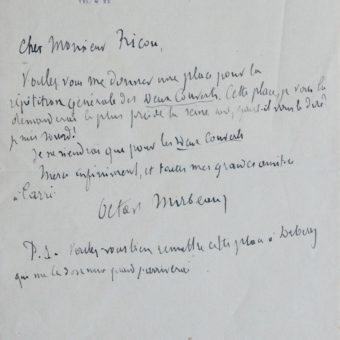 Cher Monsieur Fricou,
Voulez vous me donner une place pour la
répétition générale des Deux Couverts. Cette place, je vous la
demanderai le plus près de la scène
je suis sourd!
Je ne viendrai que pour les Deux Couverts
Merci infiniment, et toutes mes grandes amitiés
à
Octave Mirbeau
P.S. Voulez vous bien remettre cette place à
qui me la donnera quand j'arriverai